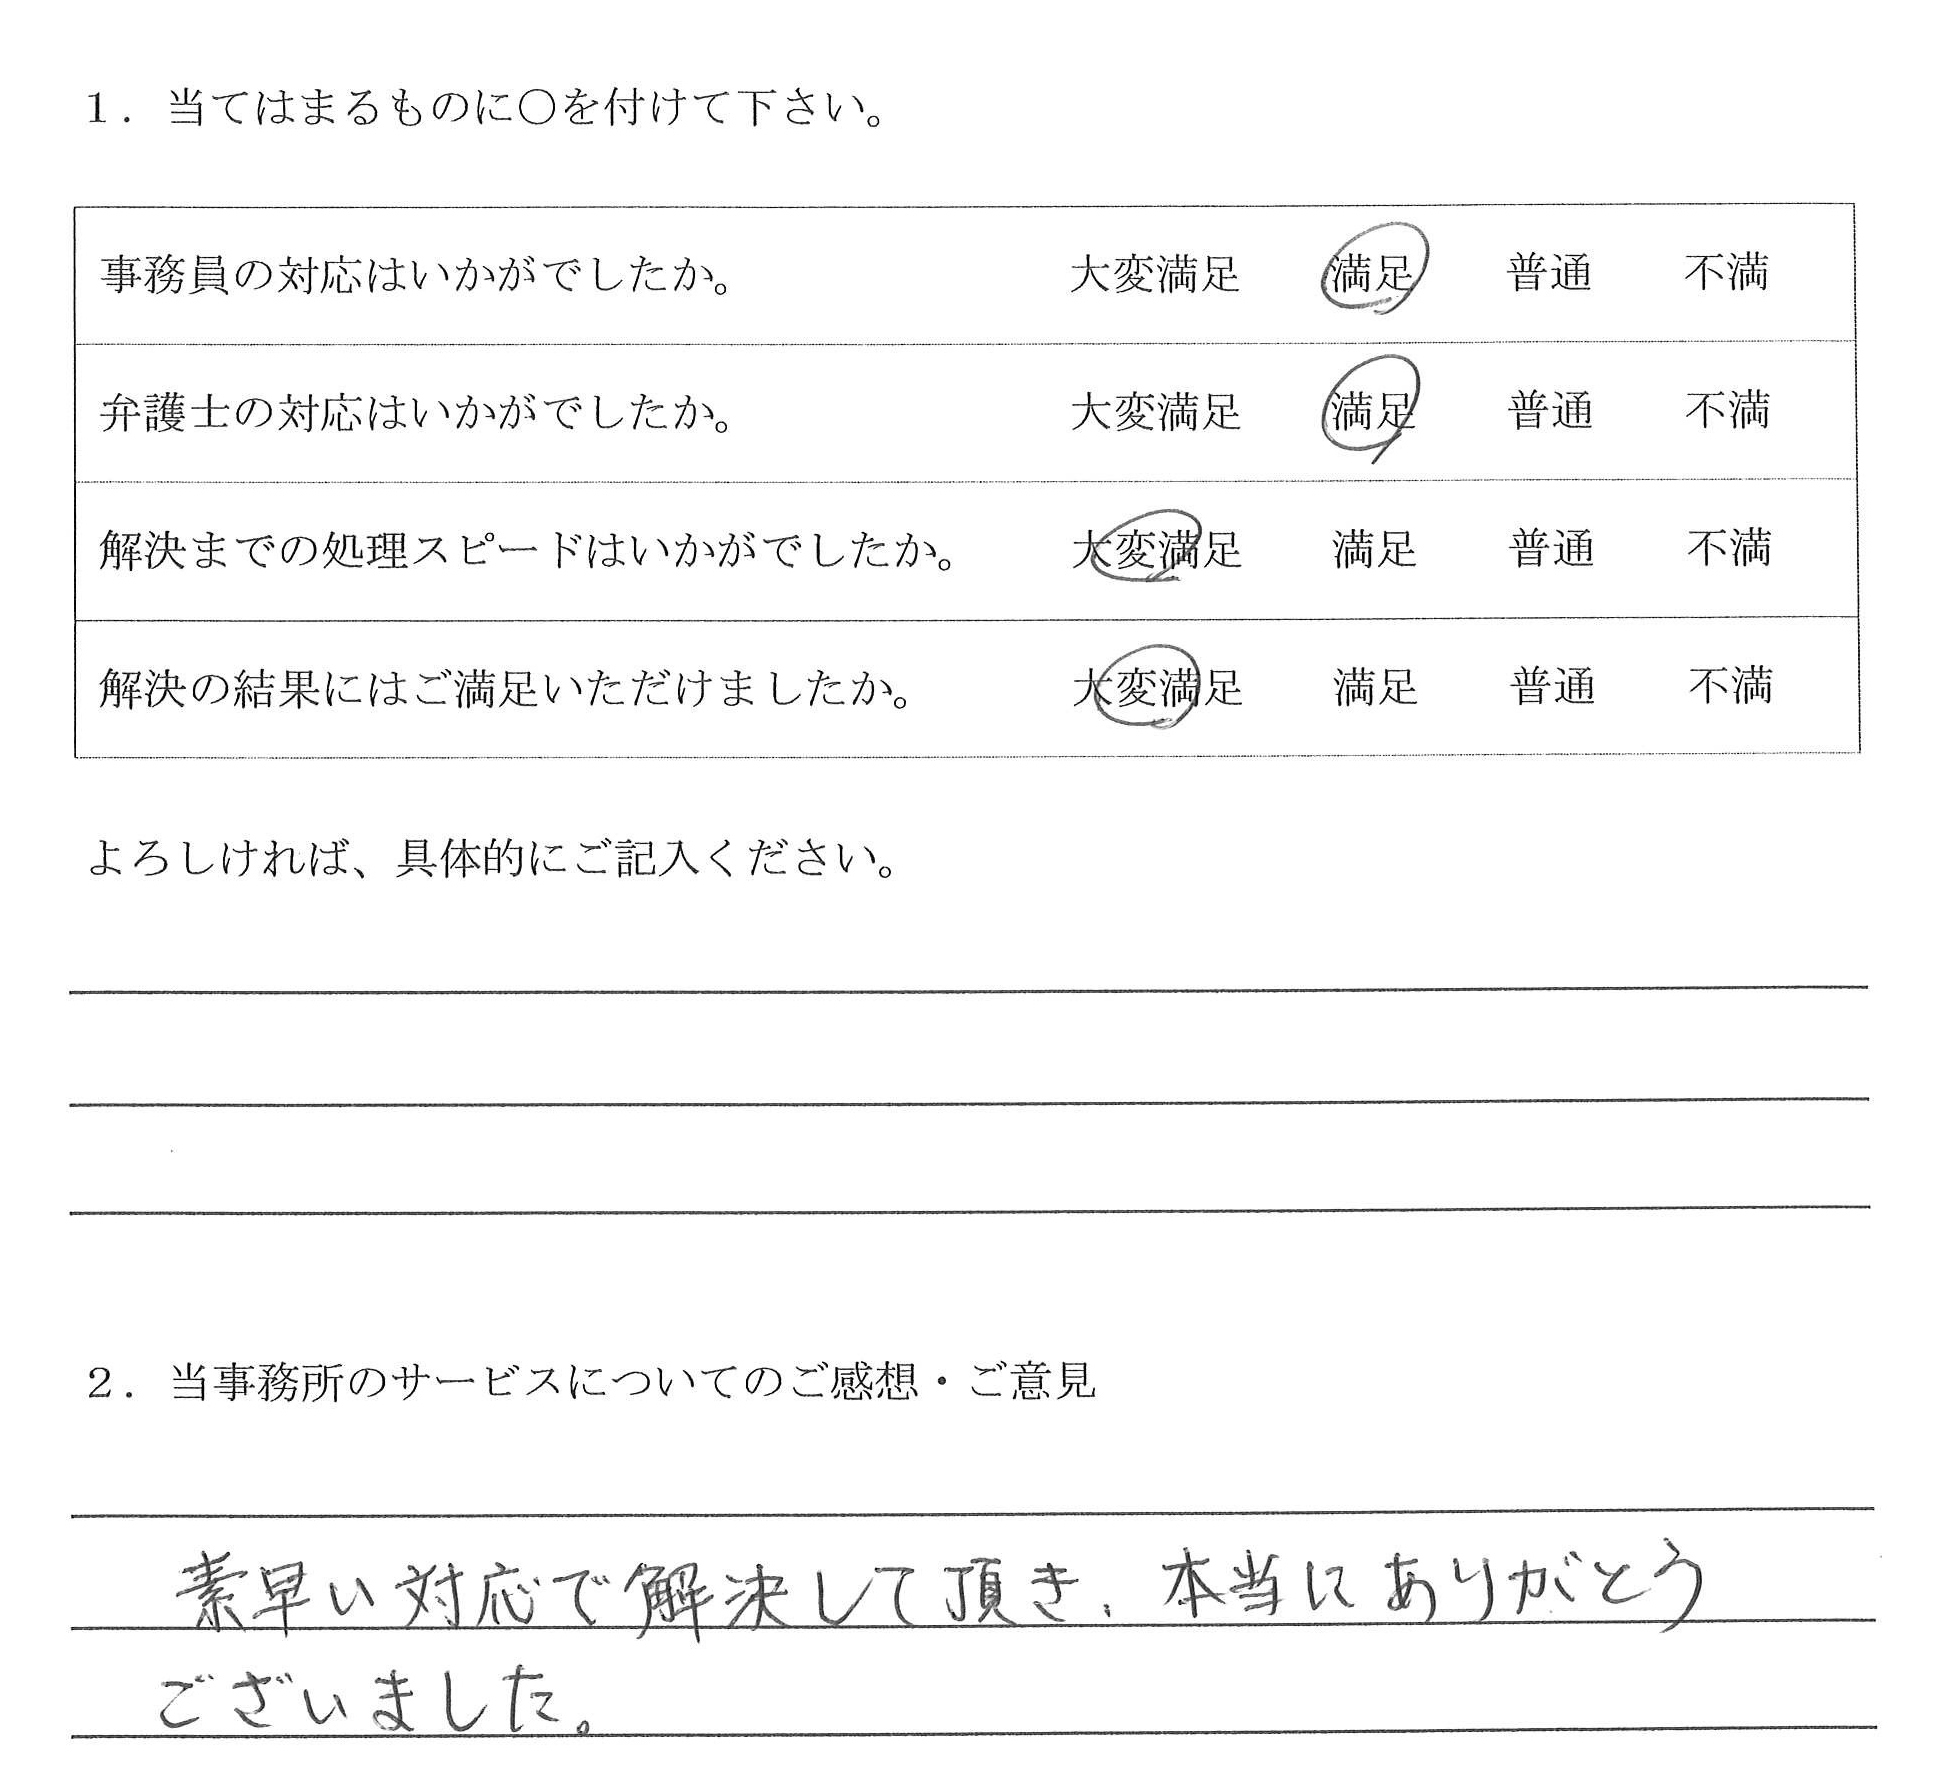 1．当てはまるものに〇を付けて下さい。
事務員の対応はいかがでしたか。 大変満足 満足 普通 不満
弁護士の対応はいかがでしたか。 大変満足 満足 普通 不満
解決までの処理スピードはいかがでしたか。 大変満足 満足 普通 不満
解決の結果にはご満足いただけましたか。 大変満足 満足 普通 不満
よろしければ、具体的にご記入ください。
2．当事務所のサービスについてのご感想・ご意見
素早い対応で解決して頂き、本当にありがとう
ございました。